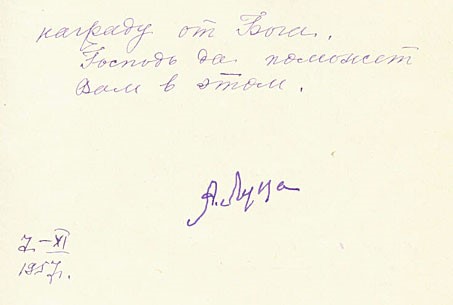 награду от Бога.
Господь да поможет
Вам в этом.
А. Лука
7–XI
1957.